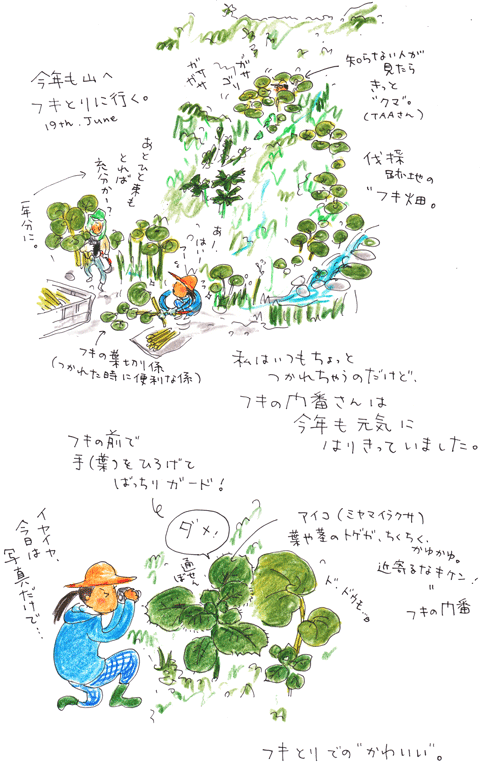 今年も山へ
フキとりに行く。
19th. June
ガサガサ
ガサゴソ
知らない人が
見たら
きっと
"クマ"。
(TAAさん)
伐採
跡地の
"フキ畑。
あとひと束も
とれば
充分かしら?
一年分に。
あー
フキの葉切り係
(つかれた時に便利な係)
私はいつもちょっと
つかれちゃうのだけど、
フキの門番さんは
今年も元気に
はりきっていました。
フキの前で
手(葉)をひろげて
ばっちりガード!
ダメ!
通せんぼ
アイコ(ミヤマイラクサ)
葉や茎のトゲが、ちくちく、
かゆかゆ。
近寄るなキケン!
=
フキの門番
ド、ドウモ…。
イヤイヤ、
今日は
写真だけで…
フキとりでの"かわいい"。